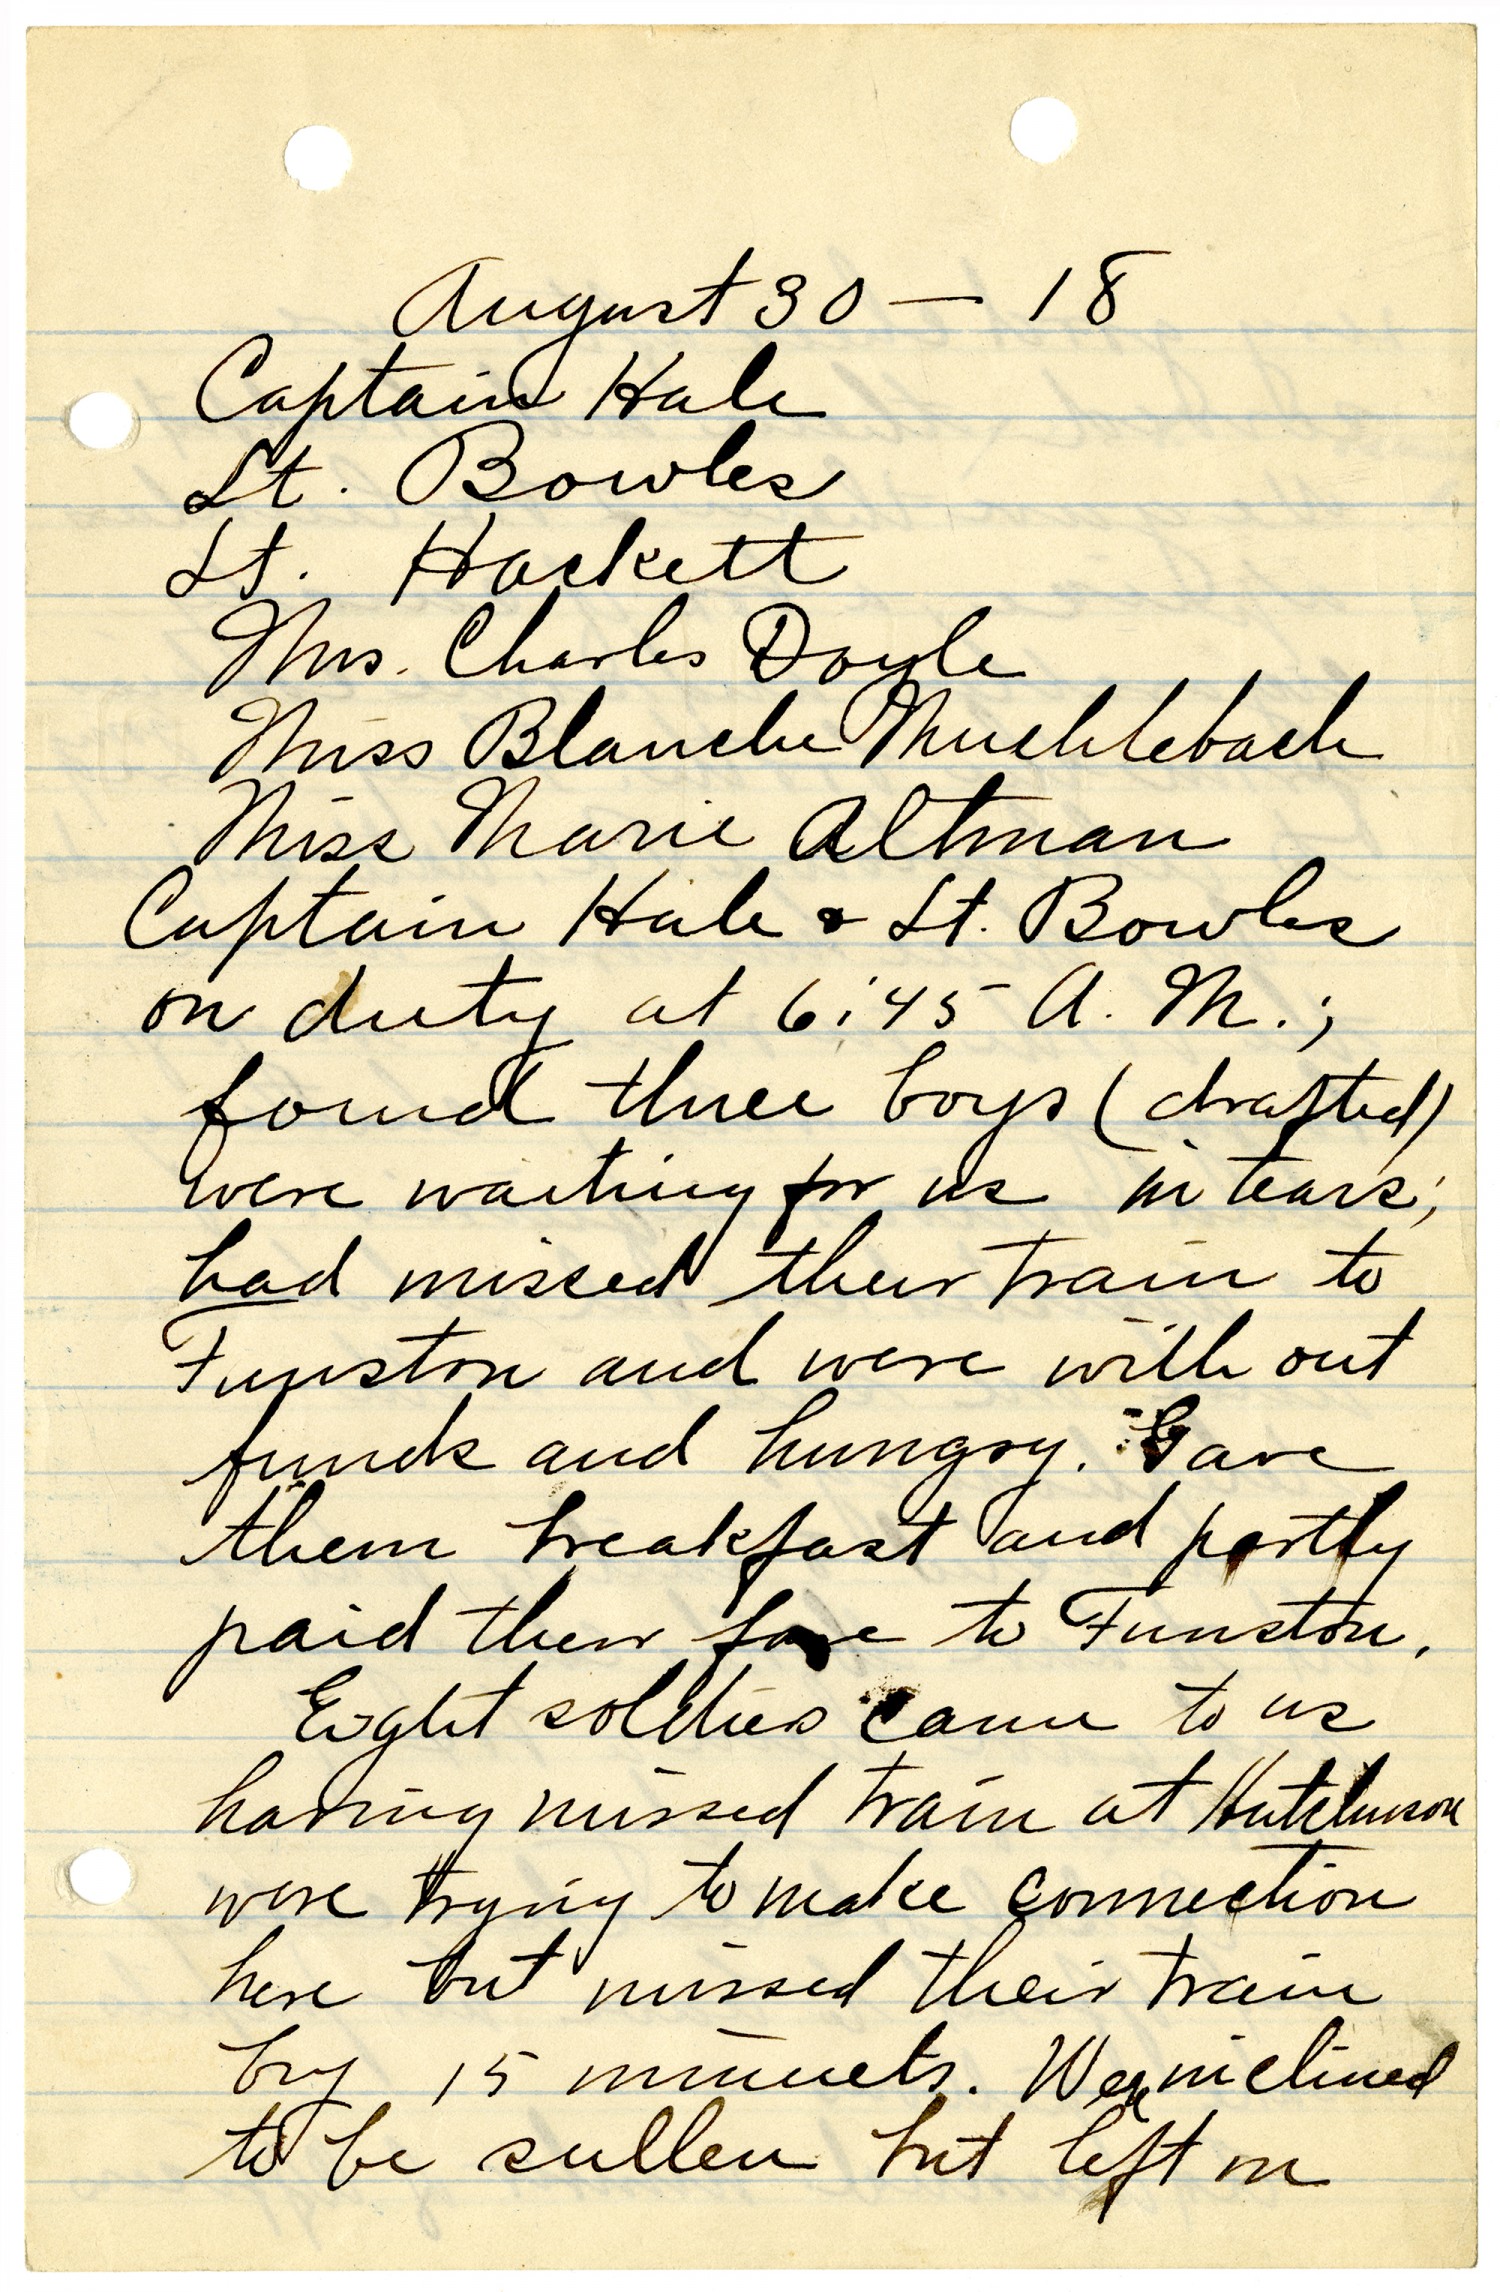 August 30 — 18
Captain Hale
Lt. Bowles
Lt. Hackett
Mrs. Charles Doyle
Miss Blanche Muehlebach
Miss Marie Altman
Captain Hale & Lt. Bowles
on duty at 6:45 A. M.;
found three boys (drafted)
were waiting for us in tears;
had missed their train to
Funston and were with out
funds and hungry. Gave
them breakfast and partly
paid their fare to Funston.
Eight soldiers came to us
having missed train at Hutchinson
were trying to make connection
here but missed their train
by 15 minuets. Were inclined
to be sullen but left in